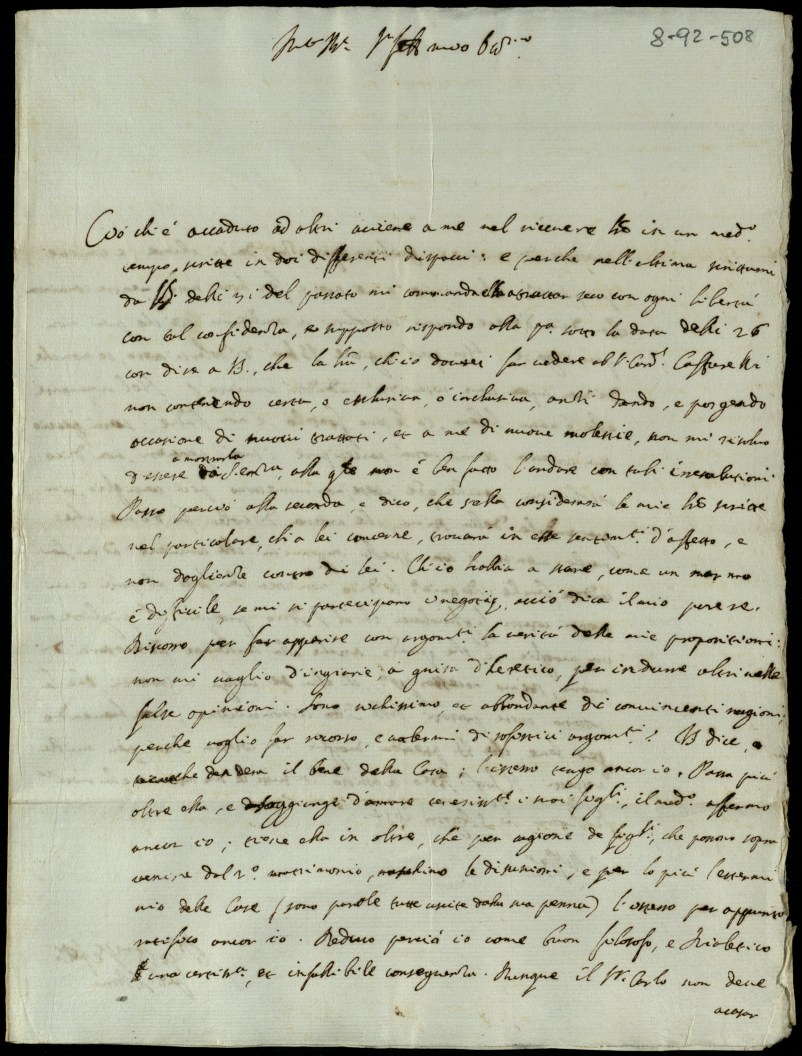 8-92-508
Ciò ch'è accaduto ad altri aviene a me nel ricevere in un med.º
tempo scritte in doi differenti dispacci: e perche nell'ultima scrittami
da delli del passato mi commanda trattar seco con ogni libertà
con tal confidenza, e supposto rispondo alla p.ª sotto la data delli 26
con dire a, che la, ch'io dovrei far vedere al S.r Card.l Caffarelli
non contenendo certa, o esclusiva, ò inclusiva, anzi dando, e porgendo
occasione di nuovi trattati, et a me di nuove molestie, non mi risolvo
d'essere a mostrarla, alla q.le non è ben fatto l'andare con tali irresolutioni
Passo perciò alla seconda, e dico, che s'ella considererà le mie scritte
nel particolare, ch'a lei concerne, trovarà in esse sentim.ti d'affetto, e
non doglienze contro di lei. Ch'io habbia a stare, come un marmo
è difficile, se mi si partecipano i negotij, acciò dica il mio parere.
Discorro per far apparire con argom.ti la verità delle mie propositioni:
non mi vaglio d'ingiurie, a guisa d'heretico, per indurre altri nelle
false opinioni. Sono richissimo, et abbondante di convincenti ragioni,
perche voglio far ricorso, e valermi di sofistici argom.ti? dice,
che desidera il bene della Casa; l'istesso tengo ancor io. Passa più
oltre ella, e soggiunge d'amare i suoi figli, il med.º affermo
ancor io; tiene ella in oltre, che per cagione de figli, che possono sopra
venire dal 2.º matrimonio, le disunioni, e per lo più l'estermi
nio delle Case (sono parole tutte uscite dalla sua penna) l'istesso per appunto
ratifico ancor io. Deduco perciò io come buon filosofo, e Dialetico
una certiss.ª, et infallibile conseguenza. Dunque il S.r Carlo non deve
acasar